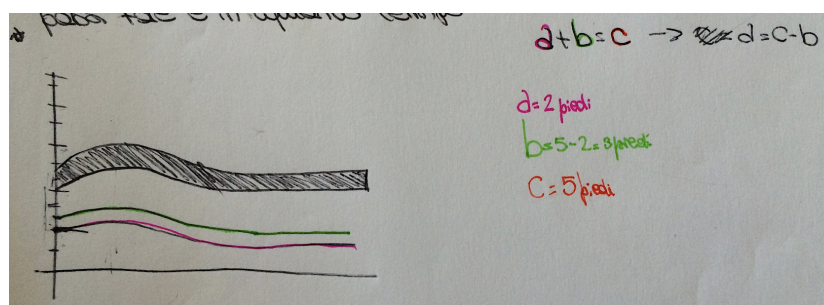 a+b=c -> a=c-b
a=2 piedi
b=5-2=3piedi
c=5piedi